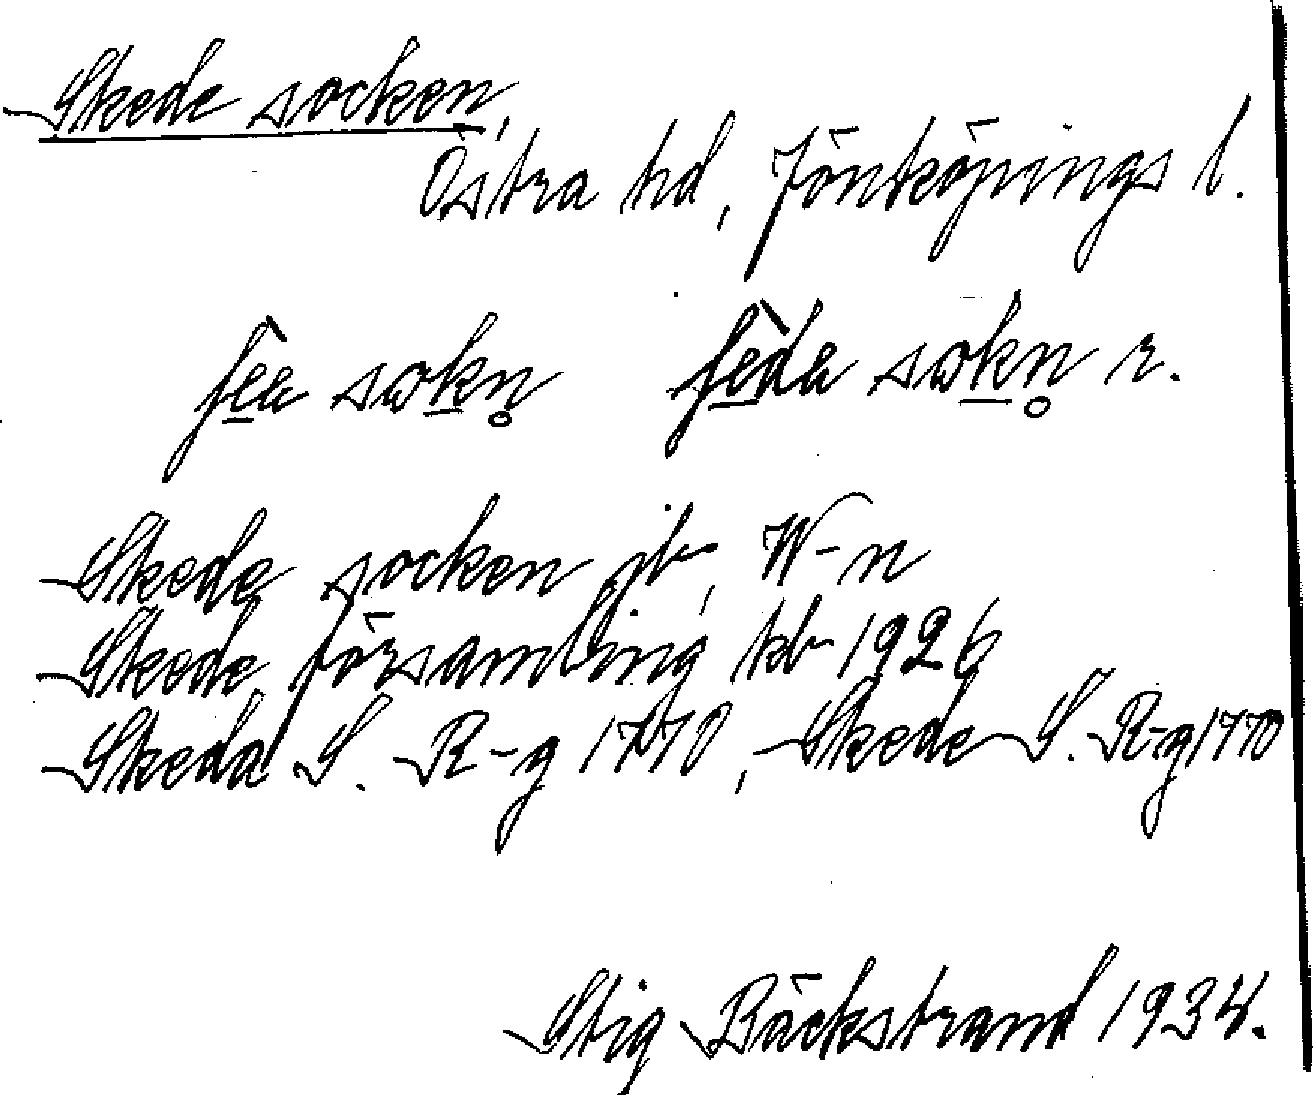 Skede socken,
Östra hd, Jönköpings l.
ʃèa sωkn̥ ʃèda sωkn̥ r.
Skede socken jb, W-n
Skede församling kb 1926
Skeda S. R-g 1770, Skede S. R-g 1770
Stig Bäckstrand 1934.